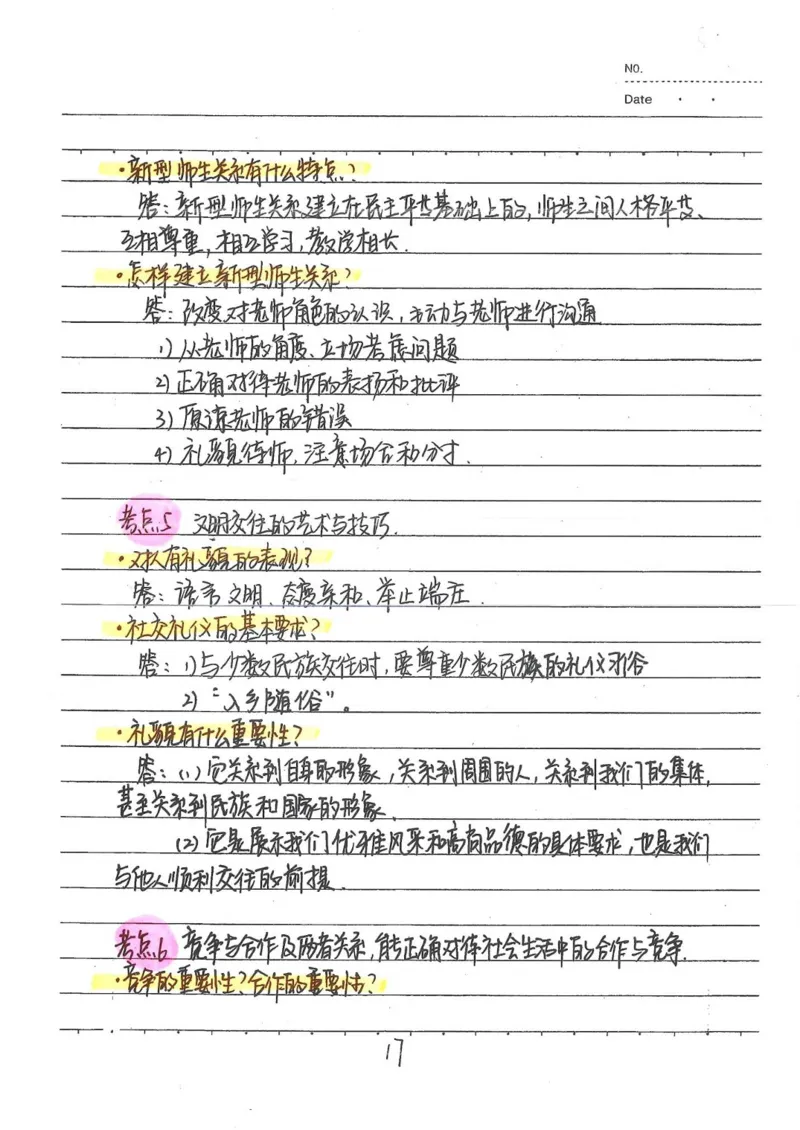 NO.
Date · ·
·新型师生关系有什么特点?
答:新型师生关系建立在民主平等基础上的,师生之间人格平等、
互相尊重,相互学习,教学相长.
·怎样建立新型师生关系?
答:改变对老师角色的认识,主动与老师进行沟通
1)从老师的角度、立场考虑问题
2)正确对待老师的表扬和批评
3)原谅老师的错误
4)礼貌待师,注意场合和分寸.
考点5 文明交往的艺术与技巧.
·对人有礼貌的表现?
答:语言文明、态度亲和、举止端庄.
·社交礼仪的基本要求?
答:1)与少数民族交往时,要尊重少数民族的礼仪习俗
2)“入乡随俗”。
·礼貌有什么重要性?
答:(1)它关系到自身的形象,关系到周围的人,关系到我们的集体,
甚至关系到民族和国家的形象.
(2)它是展示我们优雅风采和高尚品德的具体要求,也是我们
与他人顺利交往的前提.
考点6 竞争与合作及两者关系,能正确对待社会生活中的合作与竞争.
·竞争的重要性?合作的重要性?
17